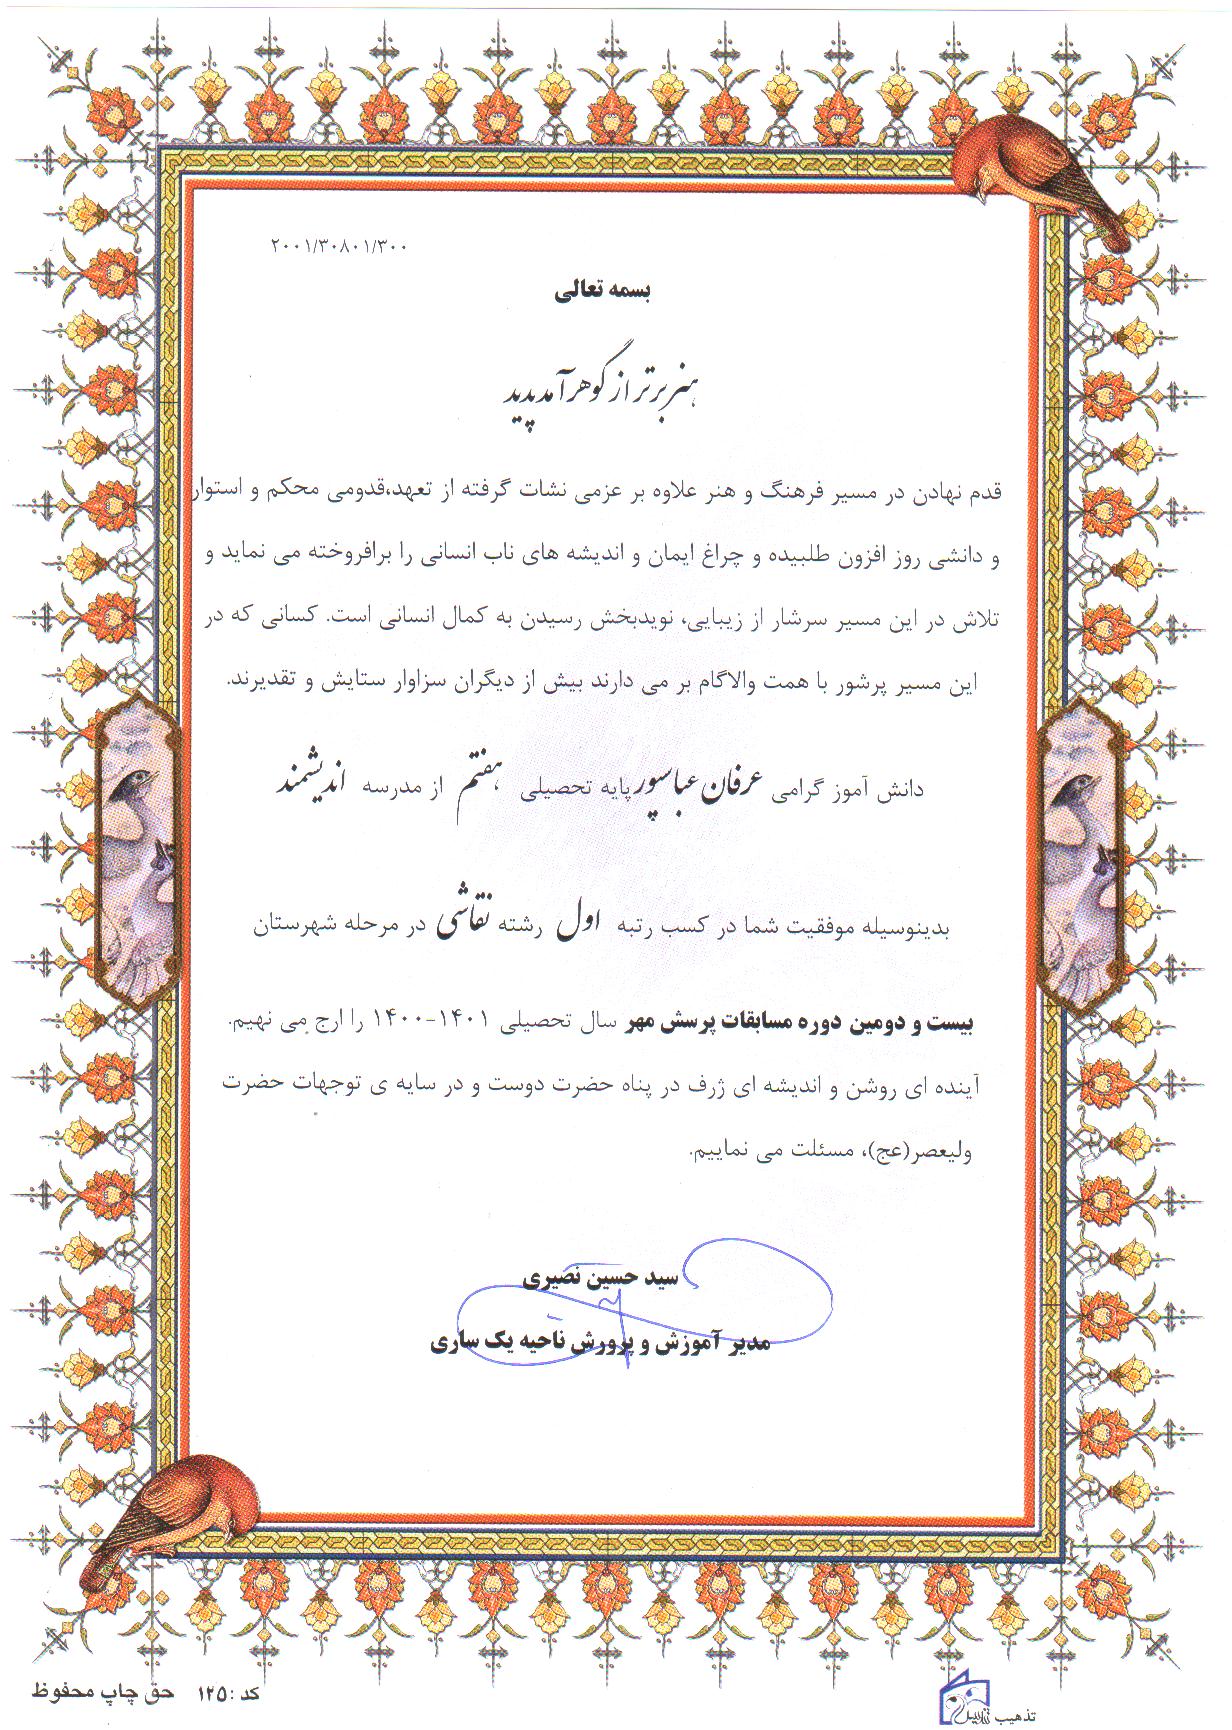 ۲۰۰۱/۳۰۸۰۱/۳۰۰
بسمه تعالی
هنر برتر از گوهر آمد پدید
قدم نهادن در مسیر فرهنگ و هنر علاوه بر عزمی نشات گرفته از تعهد،قدومی محکم و استوار
و دانشی روز افزون طلبیده و چراغ ایمان و اندیشه های ناب انسانی را برافروخته می نماید و
تلاش در این مسیر سرشار از زیبایی، نویدبخش رسیدن به کمال انسانی است. کسانی که در
این مسیر پرشور با همت والاگام بر می دارند بیش از دیگران سزاوار ستایش و تقدیرند.
دانش آموز گرامی عرفان عباسپور پایه تحصیلی هفتم از مدرسه اندیشمند
بدینوسیله موفقیت شما در کسب رتبه اول رشته نقاشی در مرحله شهرستان
بیست و دومین دوره مسابقات پرسش مهر سال تحصیلی ۱۴۰۱-۱۴۰۰ را ارج می نهیم.
آینده ای روشن و اندیشه ای ژرف در پناه حضرت دوست و در سایه ی توجهات حضرت
ولیعصر(عج)، مسئلت می نماییم.
سید حسین نصیری
مدیر آموزش و پرورش ناحیه یک ساری
کد :۱۲۵ حق چاپ محفوظ
تذهیب تندیس